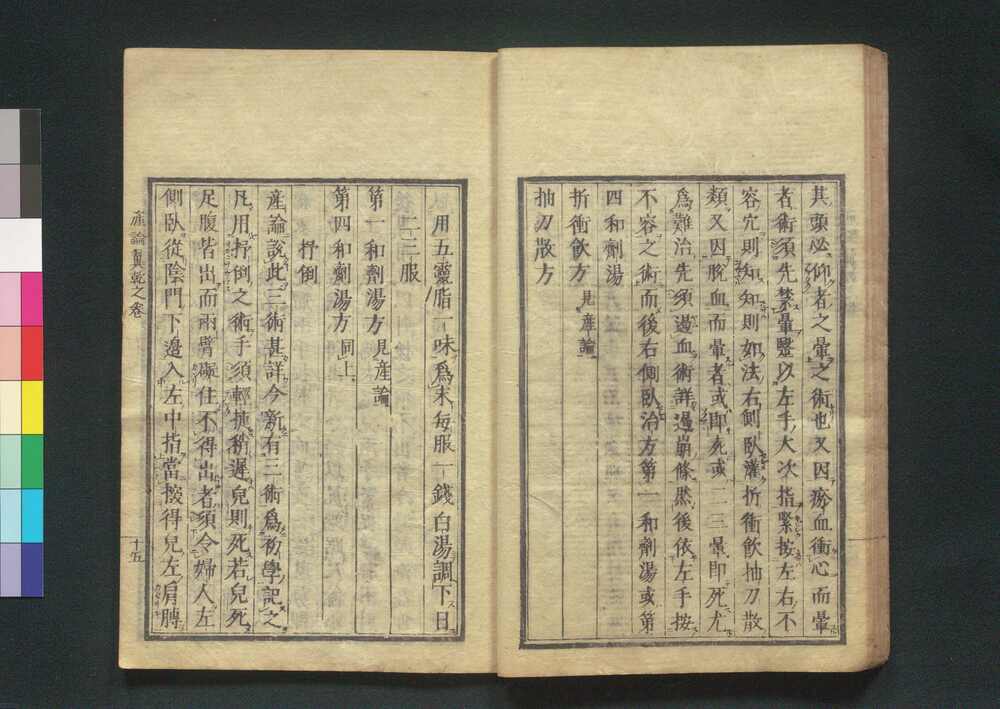 其頭必仰者之暈之術也又因瘀血衝心而暈
者術須先禁暈鑒以左手大次指緊按左右不
容穴則知知則如法右側臥灌折衝飲抽刀散
類又因脫血而暈者或即死或一二三暈即死尤
爲難治先須遏血術詳遏崩條然後依左手按
不容之術而後右側臥治方第一和劑湯或第
四和劑湯
折衝飲方 見產論
抽刀散方
用五靈脂一味爲末每服一錢白湯調下日
二三服
第一和劑湯方 見產論
第四和劑湯方 同上
抒倒
產論說此三術甚詳今新有三術爲初學記之
凡用抒倒之術手須輕捷稍遲兒則死若兒死
足腹皆出而兩臂礙住不得出者須令婦人左
側臥從陰門下邊入左中指當按得兒左肩膊
產論翼乾之卷 十五